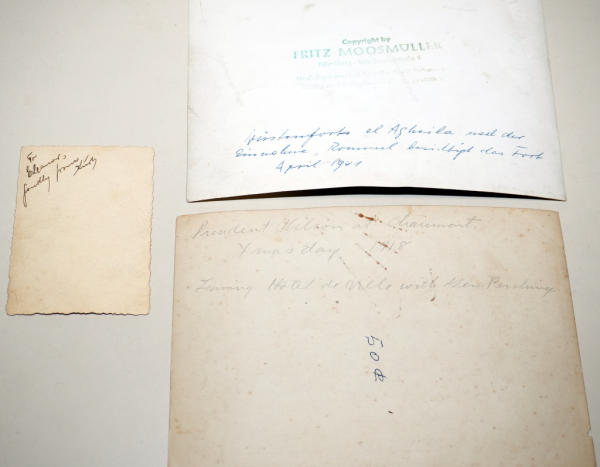 To
Eleanor,
fondly from
Copyright by
FRITZ MOOSMÜLLER
Nürnberg
Wüstenforts el Agheila nach der
Einnahme. Rommel besichtigt das Fort
April 1941
President Wilson at Chaumont
Xmas day 1918
Leaving Hotel de Ville with Gen Pershing
50¢